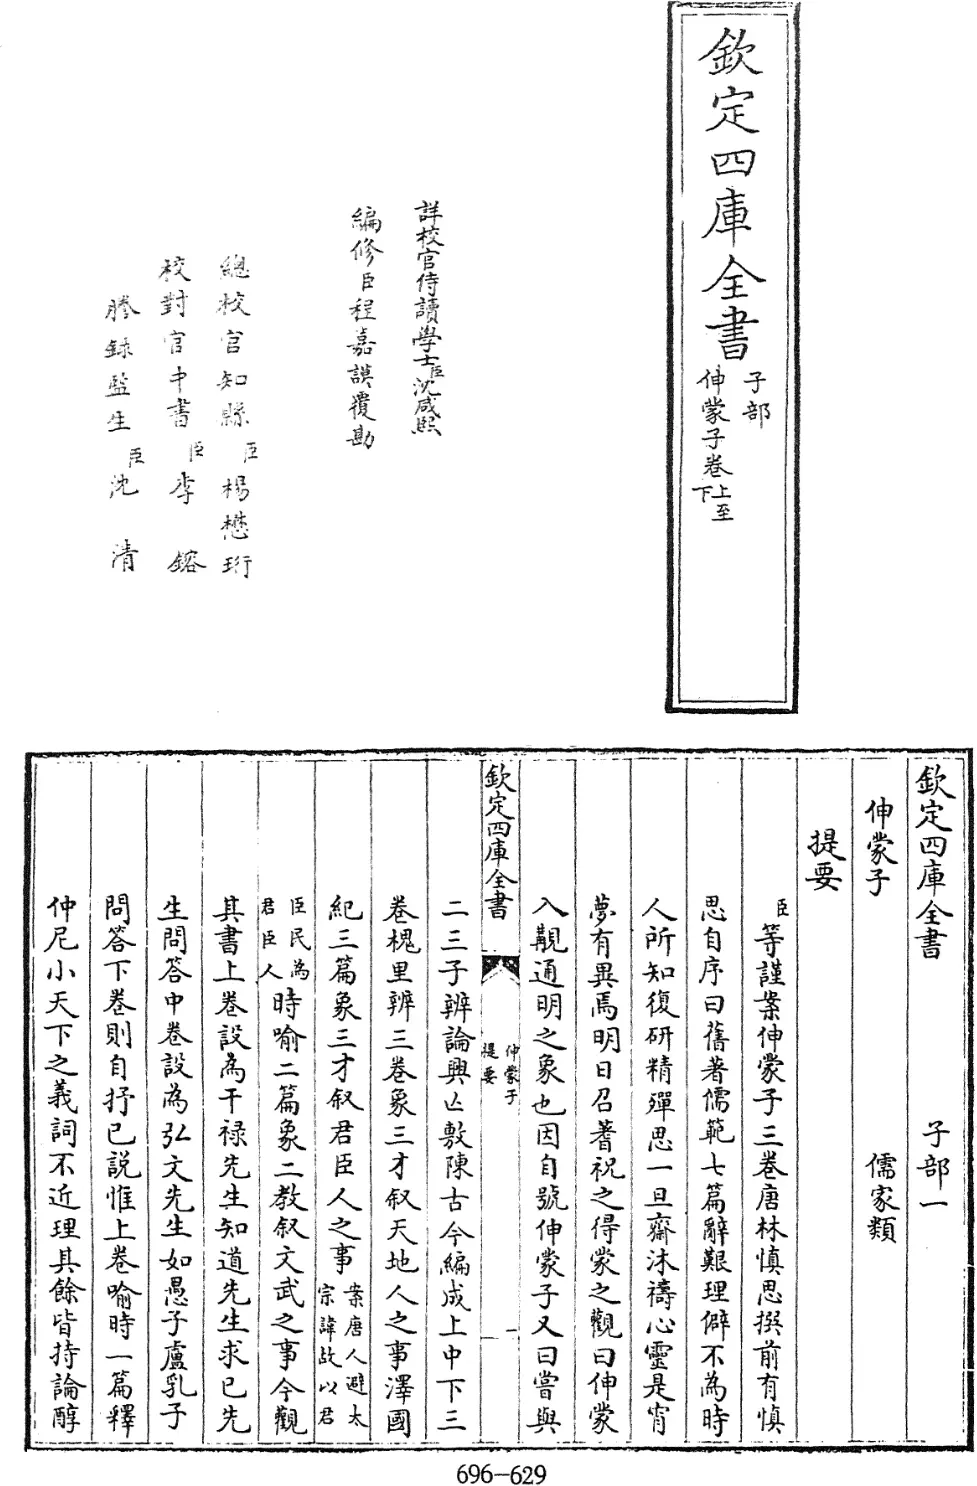 欽定四庫全書
子部
伸蒙子卷上至
下
詳校官侍讀學士臣沈咸熙
編修臣程嘉謨覆勘
總校官知縣臣楊懋珩
校對官中書臣李鎔
謄錄監生臣沈清
欽定四庫全書 子部一
伸蒙子 儒家類
提要
臣等謹案伸蒙子三卷唐林慎思撰前有慎
思自序曰舊著儒範七篇辭艱理僻不為時
人所知復研精殫思一旦齋沐禱心靈是宵
夢有異焉明日召蓍祝之得蒙之觀曰伸蒙
入觀通明之象也因自號伸蒙子又曰嘗與
欽定四庫全書 伸蒙子 提要 一
二三子辨論興亡敷陳古今編成上中下三
卷槐里辨三卷象三才叙天地人之事澤國
紀三篇象三才叙君臣人之事案唐人避太宗諱故以君
臣民為君臣人時喻二篇象二教叙文武之事今觀
其書上卷設為干祿先生知道先生求已先
生問答中卷設為弘文先生如愚子盧乳子
問答下卷則自抒已説惟上卷喻時一篇釋
仲尼小天下之義詞不近理其餘皆持論醇
696-629